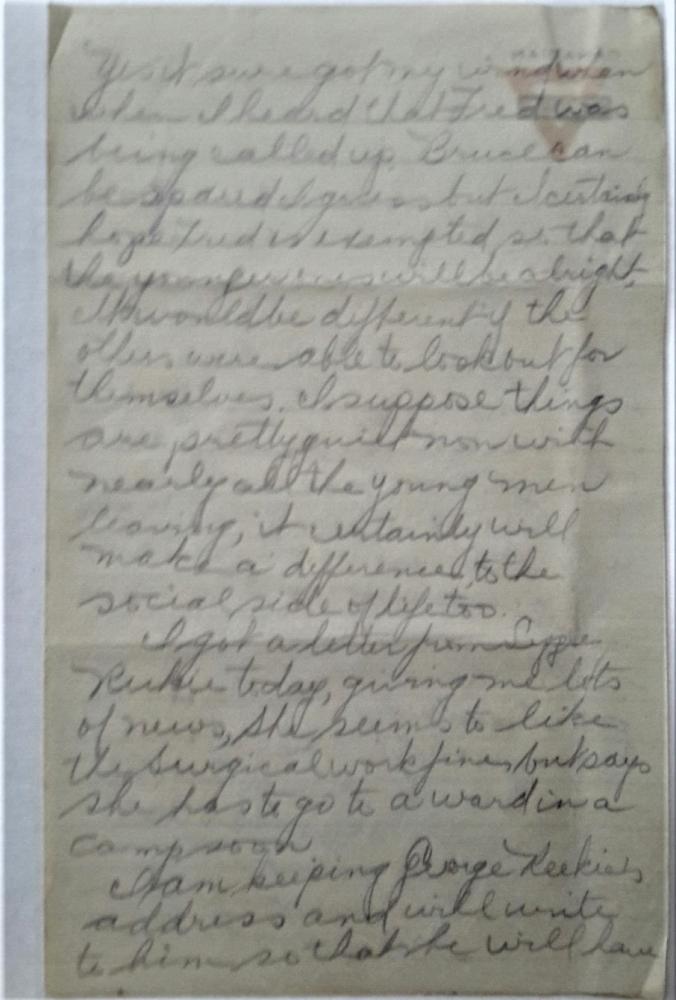 Yes it sure got my wind when
when I heard that Fred was
being called up. Bruce can
be spared I guess but I certainly
hope Fred is exempted so that
the younger ones will be alright.
It would be different if the
others were able to look out for
themselves. I suppose things
are pretty quiet now with
nearly all the young men
leaving, it certainly will
make a difference to the
social side of life too.
I got a letter from
today, giving me lots
of news, she seems to like
the surgical work fine, but says
she has to go to a ward in a
camp soon
I am keeping George
address and will write
to him so that he will have